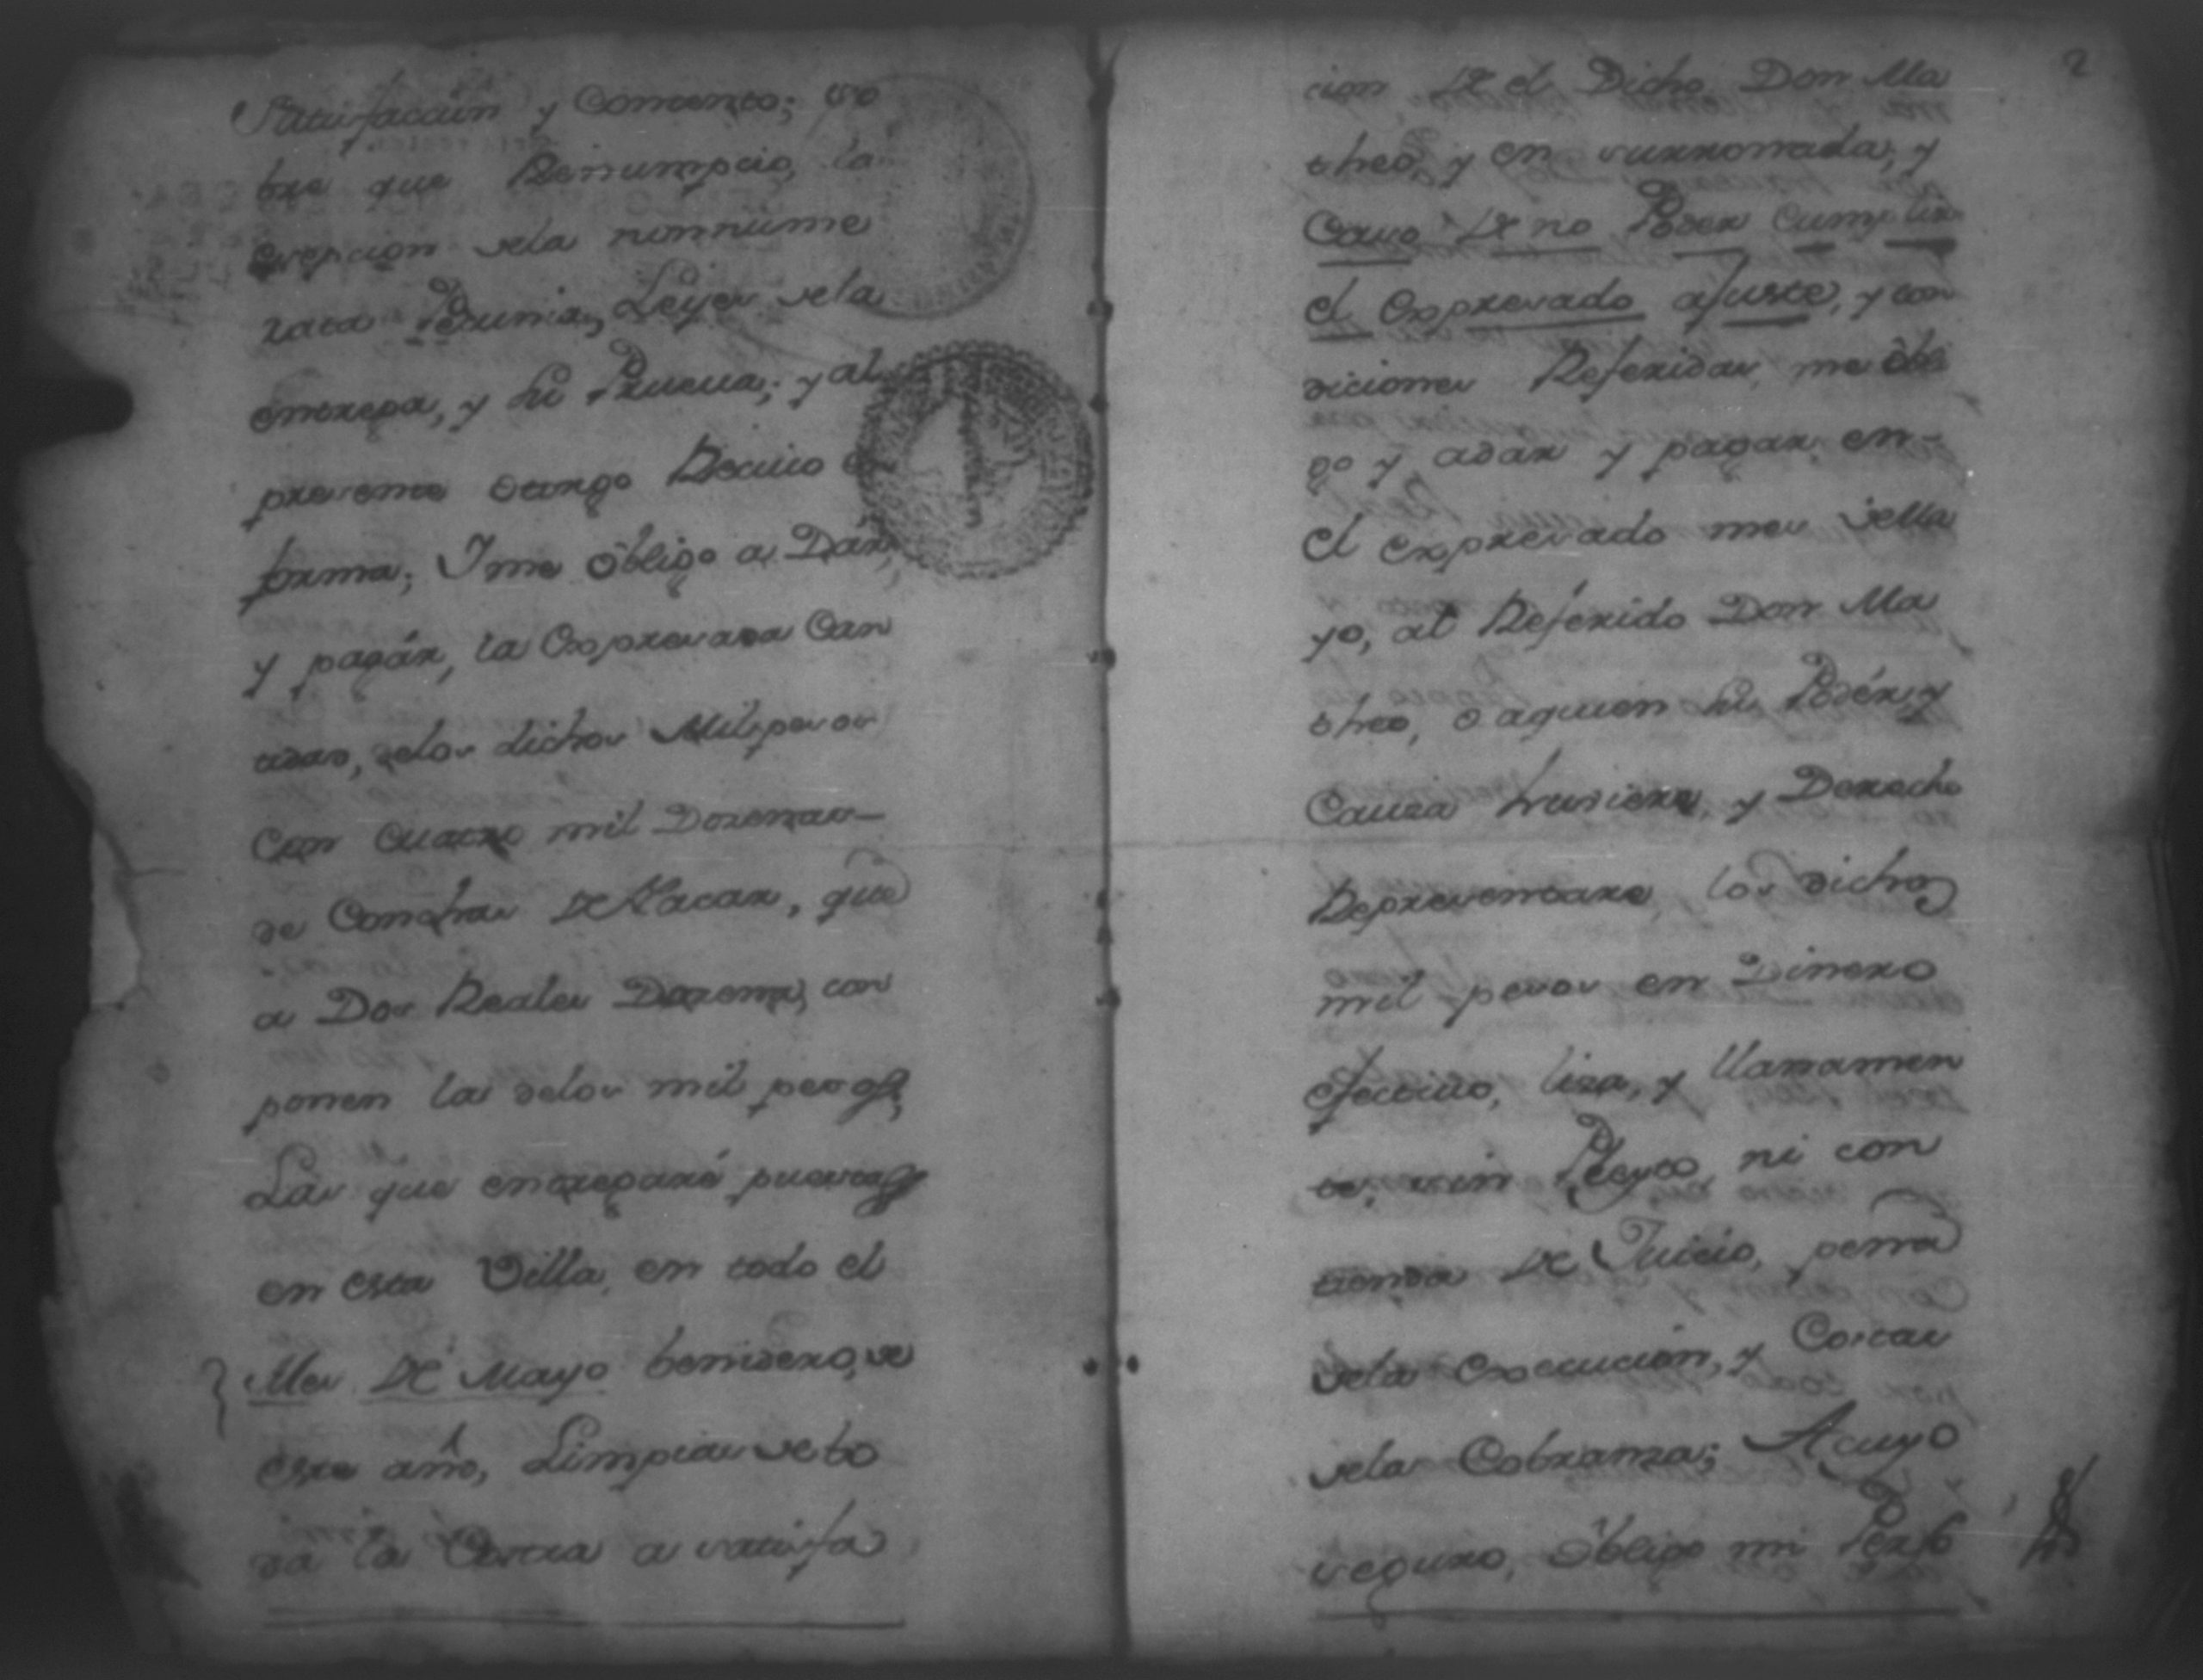 Satisfaccion y Contento; so
bre que Renumpcio, la
excepcion dela nonnume
rata Pecunia, Leyes dela
entrega, y su Prueva; y al
presente otorgo Recivo en
forma; Y me obligo a Dár,
y pagár, la Expresada Can
tidad, delos dichos Mil pesos
Con Cuatro mil Dosenas
de Conchas De Nacar, que
a Dos Reales Dosena, con
ponen las delos mil pesos,
Las que entregaré puestas
en esta Villa, en todo el
Mes De Mayo benidero, de
este año, Limpias de to
da la Costra a satisfa
2
cion De el Dicho Don Ma
theo, y en surronada, y
Caso De no Poder Cumplir
el Expresado ajuste, y con
diciones Referidas, me obli
go y adar y pagar en
el expresado mes de Ma
yo, al Referido Don Ma
theo, o aquien su Podér, y
Causa huviere, y Derecho
Representare los dichos
mil pesos en Dinero
efectivo, lisa, y llanamen
te, sin Pleyto, ni con
tienda De Juicio, pena
dela Execucion, y Costas
dela Cobranza; Acuyo
seguro, obligo mi Perso